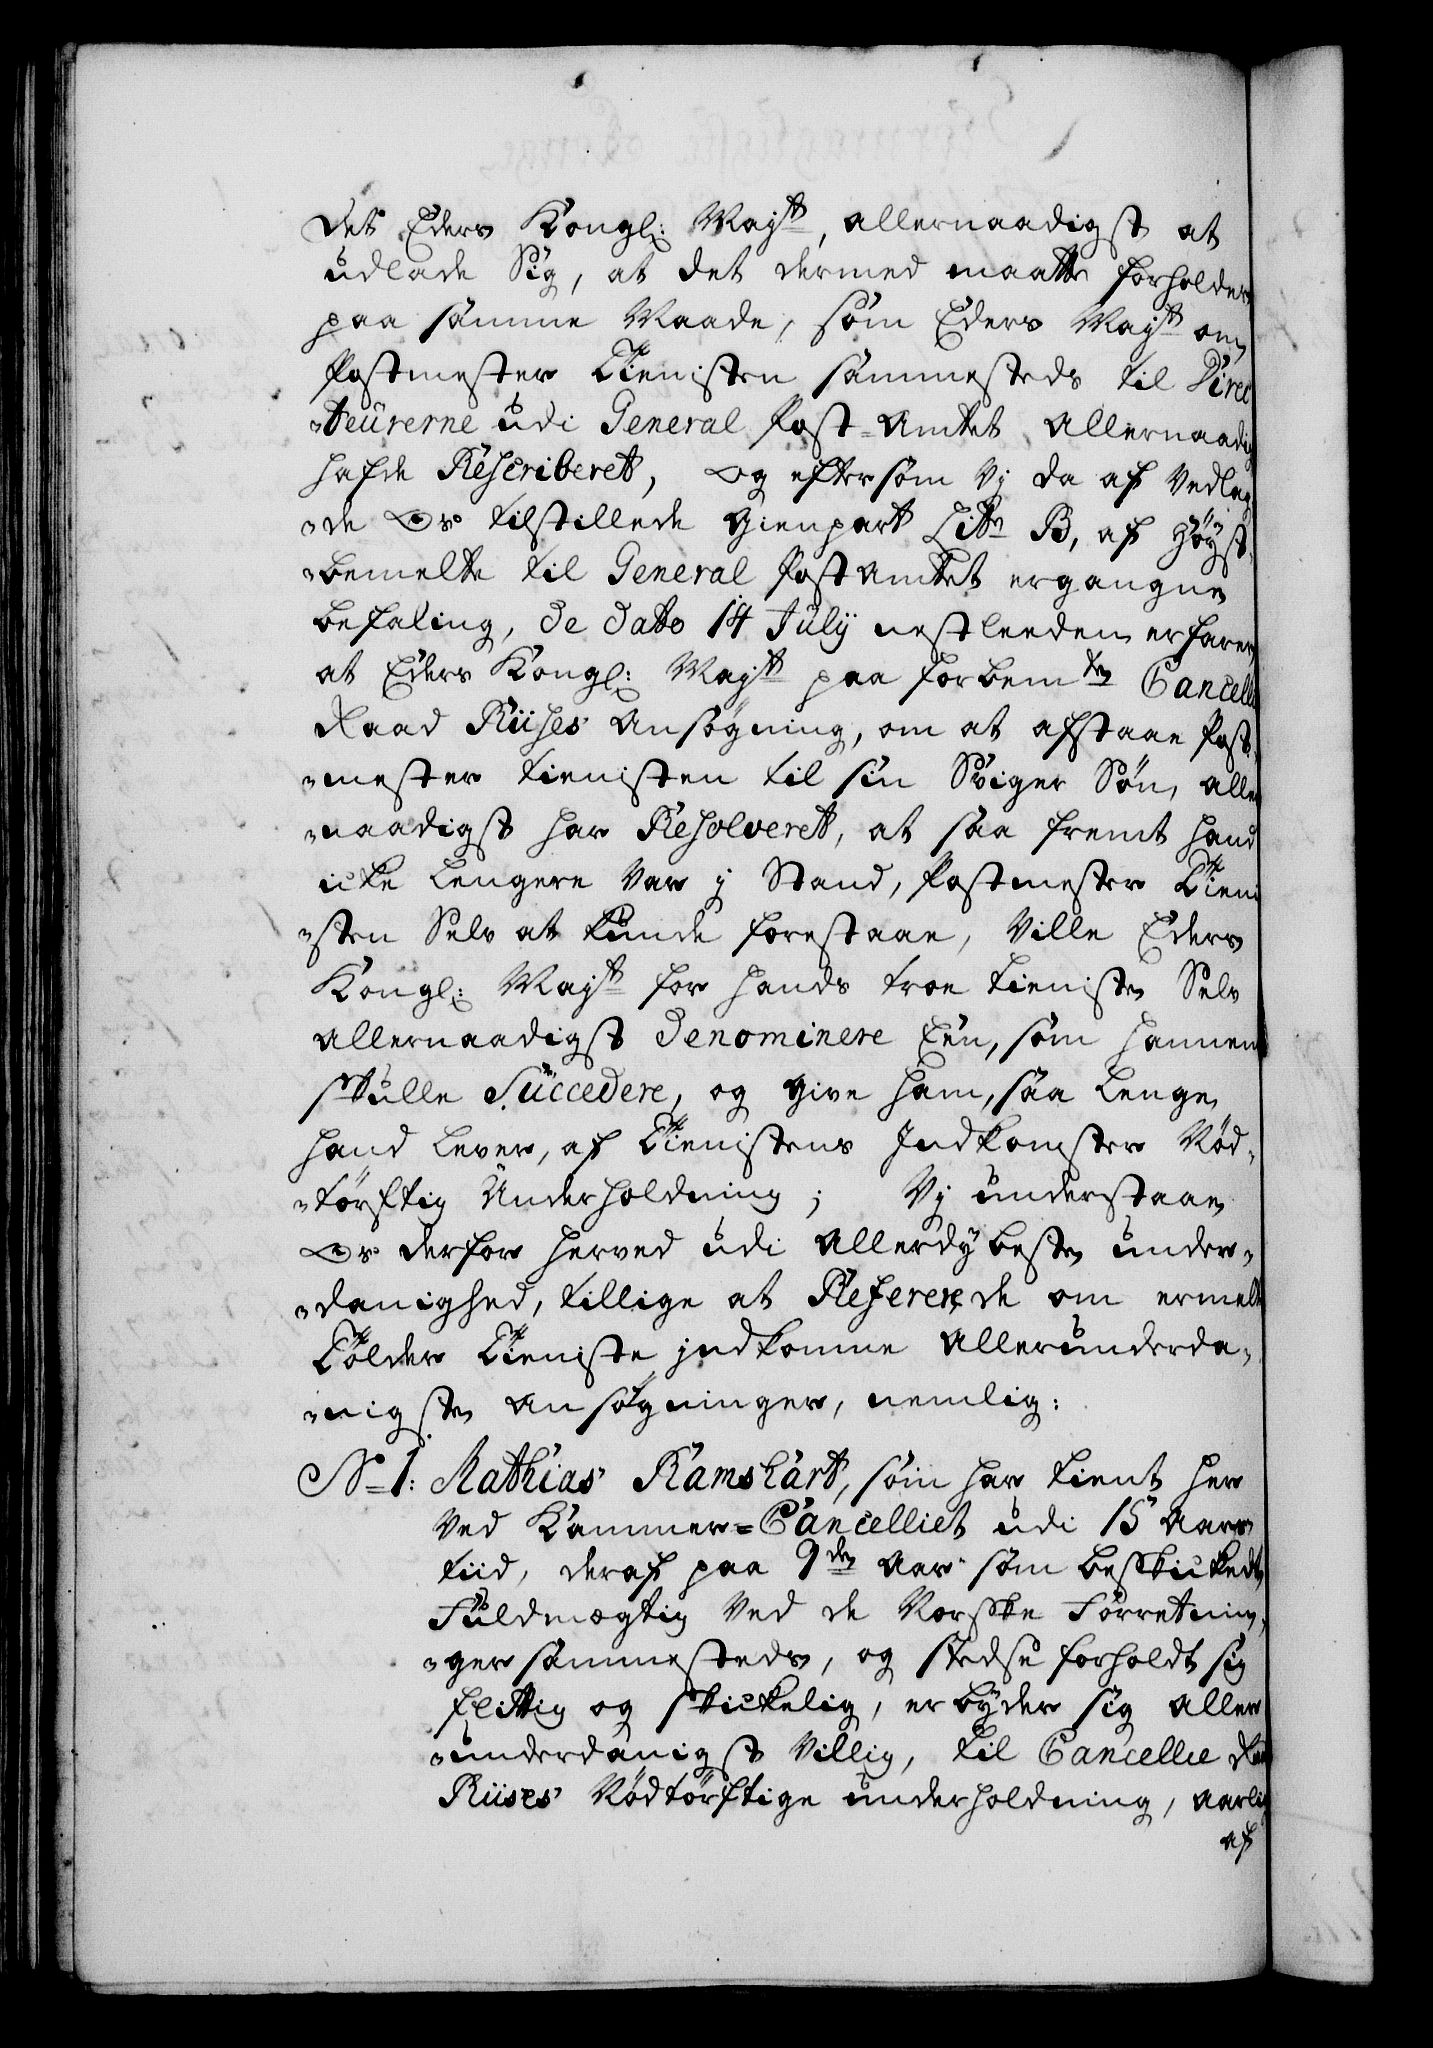 Det Eders Kongl: Mayst, allernaadigst at
udlade Sig, at det dermed maatte forholdes
paa samme Maade, som Eders Mayst om
Postmester Tienisten sammesteds til Direc
-teurerne udi General Post-Amtet Allernaadig
hafde Rescriberet, Og eftersom Vj da af Vedlag
-de Os tilstillede Gienpart Litr B, af høyst-
-bemelte til General Post Amtet ergangne
befaling, de dato 14 July nestleeden erfarer
at Eders Kongl: Mayst paa forbemten Cancellie
Raad Riises Ansøgning, om at afstaae Post-
-mester tienisten til sin Sviger Søn, aller
-naadigst har Resolveret, at saa fremt hand
icke lengere Var j Stand, Postmester Tieni
-sten Selv at kunde forestaae, Ville Eders
Kongl: Mayst for hands troe tieniste Selv
allernaadigst denominere Een, som hannem
skulle Succedere, og Give ham, saa lenge
hand lever, af Tienistens Indkomster Nød-
-tørftig Underholdning; Vj understaae
Os derfor herved udi Allerdybeste under-
-danighed, tillige at Referere de om ermelte
Tolder Tieniste jndkomne Allerunderda-
-nigste Ansøgninger, nemlig:
No 1: Mathias Ramshart, som har tient her
Ved Kammer-Cancelliet udi 15 Aars
tiid, deraf paa 9de Aar som beskicket
Fuldmægtig Ved de Norske Forretnin-
-ger sammesteds, og stedse forholdt sig
flittig og skickelig, erbyder sig Aller
-underdanigst Villig, til Cancellie Raad
Riises Nødtørftige underholdning, Aarlig
af